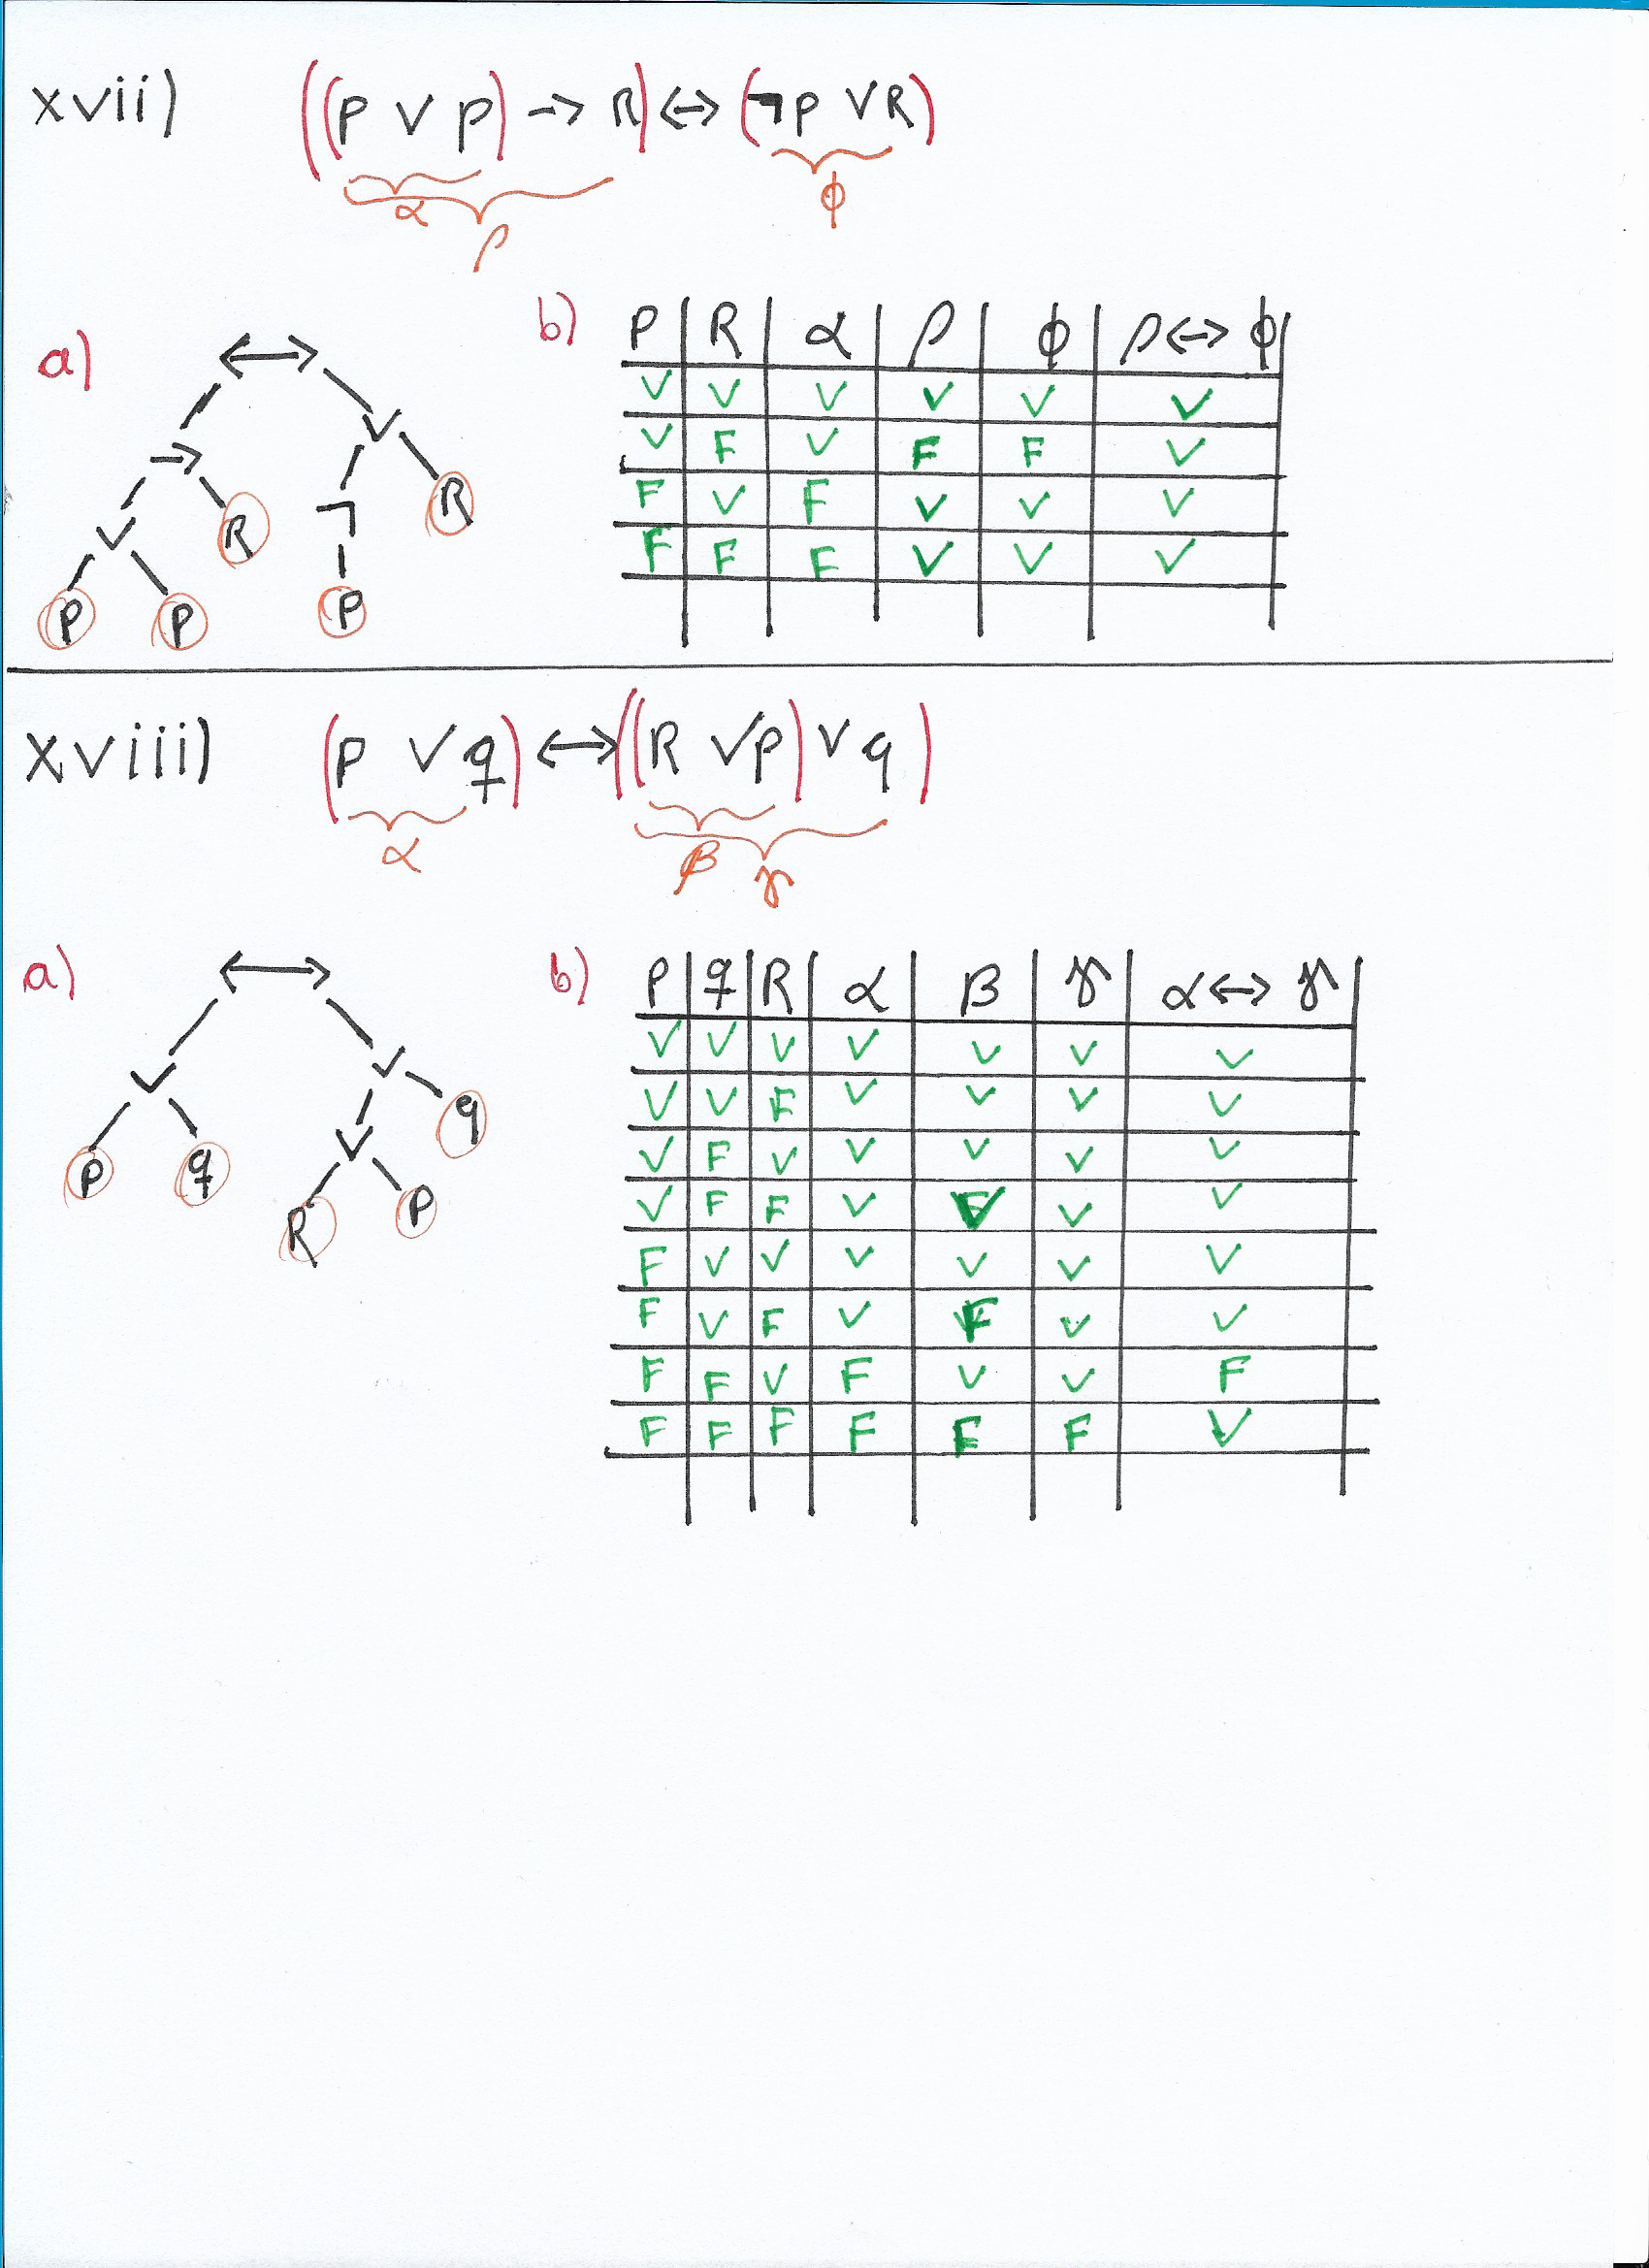 xvii) ((P ∨ p) → R) ↔ (¬p ∨ R)
α ϕ
ρ
a) b)
P R α ρ ϕ ρ ↔ ϕ
V V V V V V
V F V F F V
F V F V V V
F F F V V V
↔
→ ∨
∨ R ¬ R
P P P
xviii) (P ∨ q) ↔ ((R ∨ p) ∨ q)
α β γ
a) b)
P q R α β γ α ↔ γ
V V V V V V V
V V F V V V V
V F V V V V V
V F F V V V V
F V V V V V V
F V F V F V V
F F V F V V F
F F F F F F V
↔
∨ ∨
P q ∨ q
R P